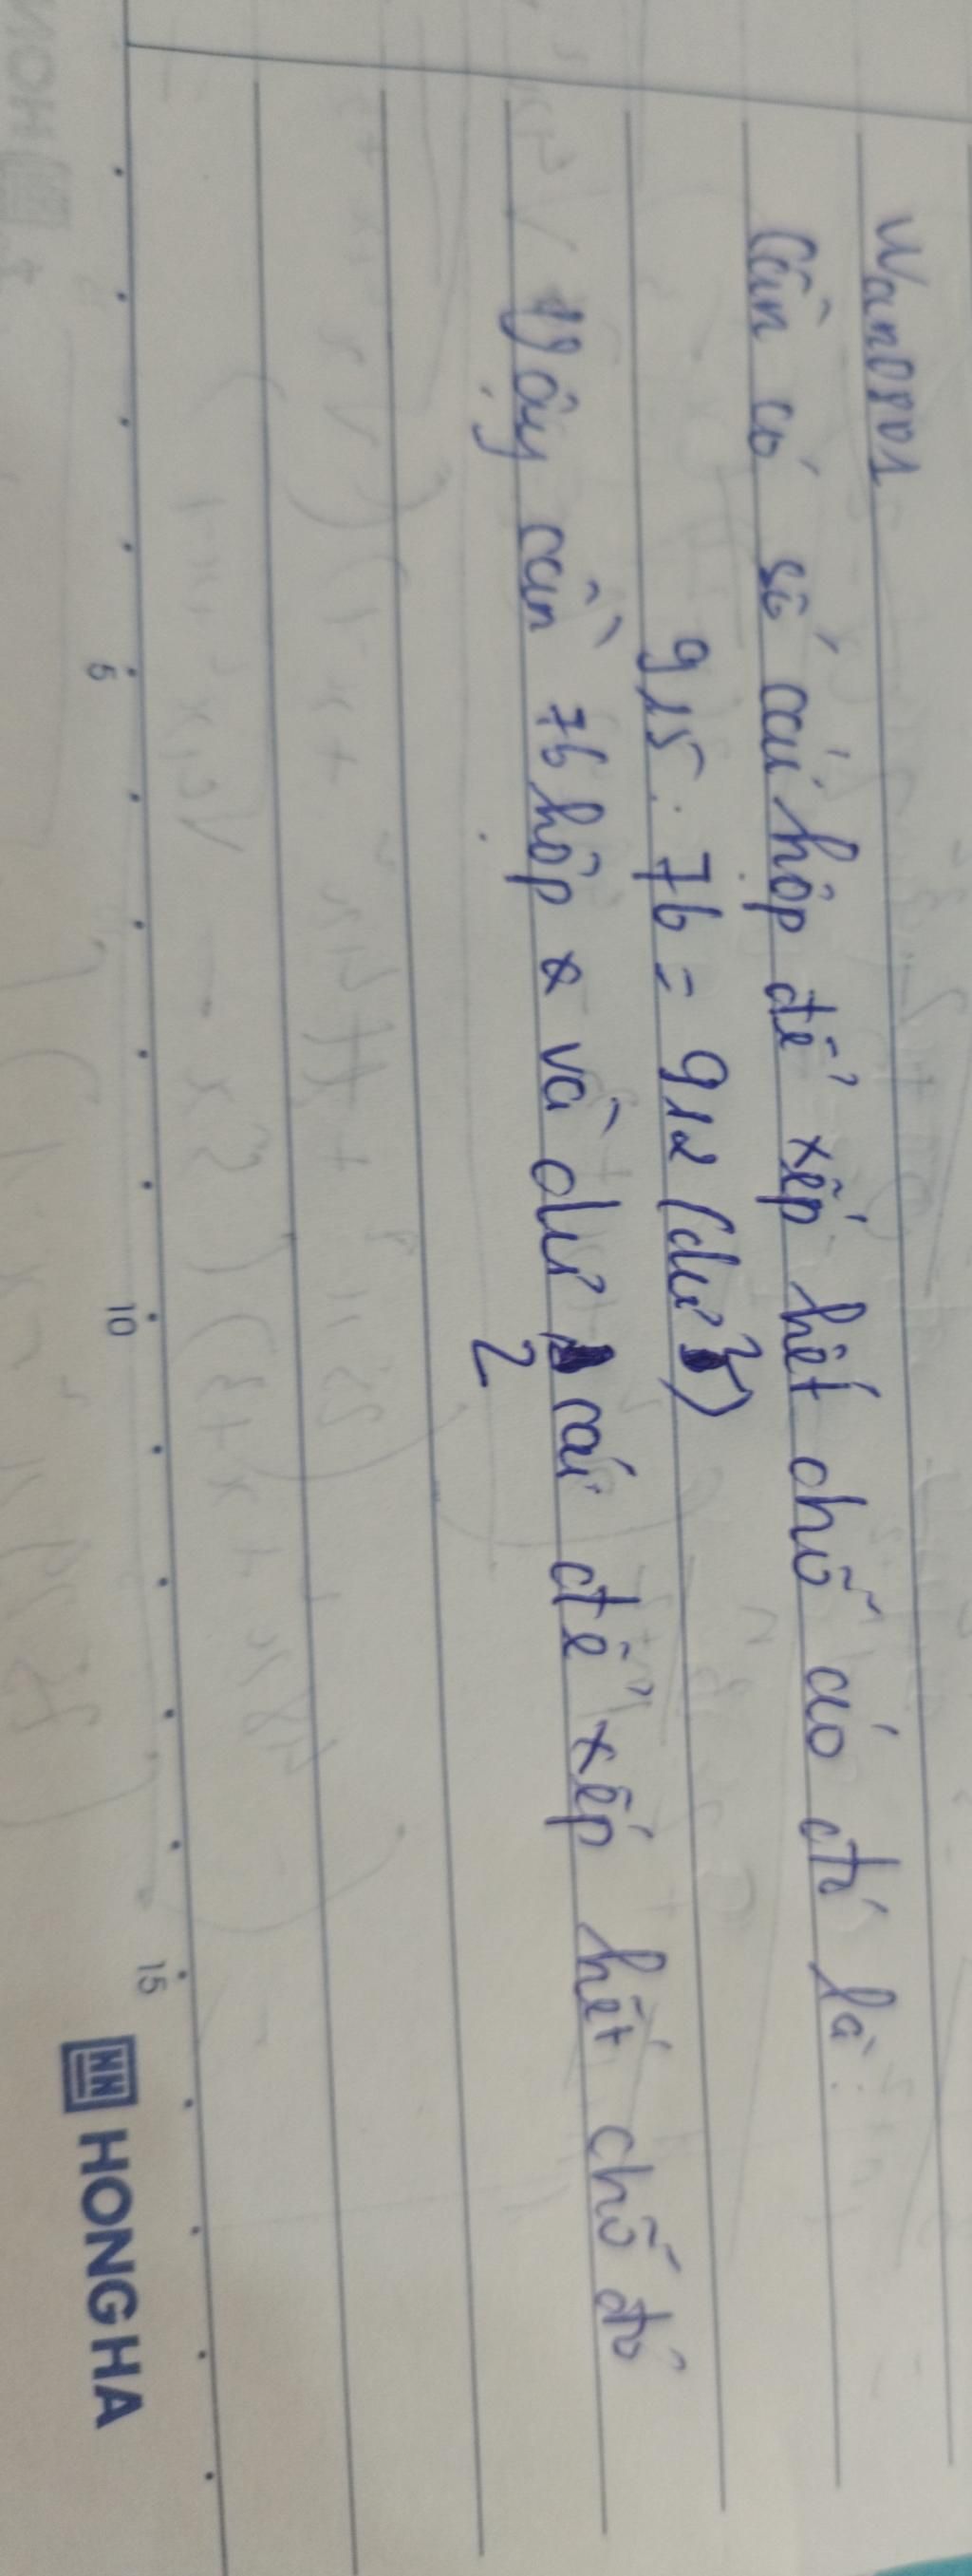 Wan0801
Cần có số cái hộp để xếp hết chỗ áo đó là:
915 : 76 = 912 (dư 3)
Vậy cần 76 hộp và dư cái để xếp hết chỗ đó
2
5 10 15
HONG HA